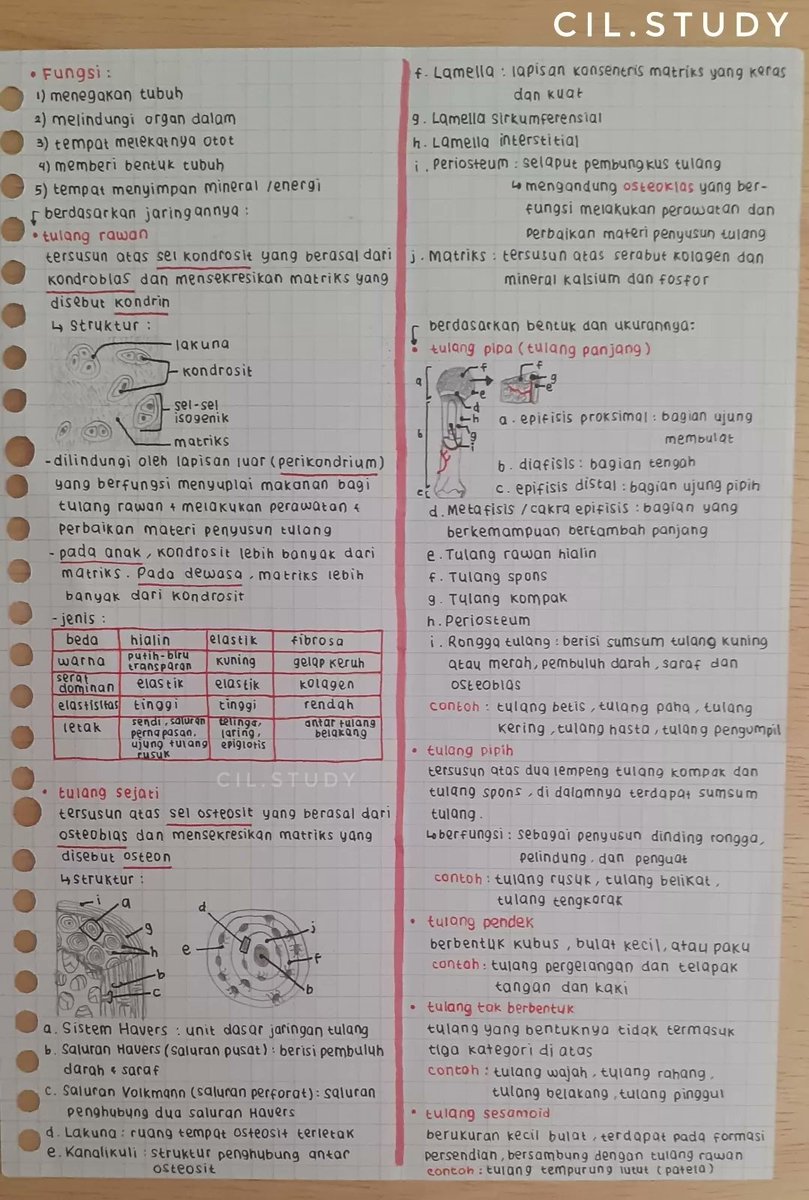 CIL.STUDY
• Fungsi :
1) menegakan tubuh
2) melindungi organ dalam
3) tempat melekatnya otot
4) memberi bentuk tubuh
5) tempat menyimpan mineral /energi
berdasarkan jaringannya :
• tulang rawan
tersusun atas sel kondrosit yang berasal dari
kondroblas dan mensekresikan matriks yang
disebut kondrin
↳ struktur :
lakuna
kondrosit
sel-sel
isogenik
matriks
-dilindungi oleh lapisan luar (perikondrium)
yang berfungsi menyuplai makanan bagi
tulang rawan + melakukan perawatan &
perbaikan materi penyusun tulang
- pada anak, kondrosit lebih banyak dari
matriks. Pada dewasa, matriks lebih
banyak dari kondrosit
-jenis :
beda hialin elastik fibrosa
warna putih-biru transparan kuning gelap keruh
serat dominan elastik elastik kolagen
elastisitas tinggi tinggi rendah
letak sendi, saluran pernapasan, ujung tulang rusuk telinga, laring, epiglotis antar tulang belakang
CIL.STUDY
• tulang sejati
tersusun atas sel osteosit yang berasal dari
osteoblas dan mensekresikan matriks yang
disebut osteon
↳struktur :
i a g h b c
d e j f b
a. Sistem Havers : unit dasar jaringan tulang
b. Saluran Havers (saluran pusat) : berisi pembuluh
darah & saraf
c. Saluran Volkmann (saluran perforat) : saluran
penghubung dua saluran Havers
d. Lakuna : ruang tempat osteosit terletak
e. Kanalikuli : struktur penghubung antar
osteosit
f. Lamella : lapisan konsentris matriks yang keras
dan kuat
g. Lamella sirkumferensial
h. Lamella interstitial
i. Periosteum : selaput pembungkus tulang
↳ mengandung osteoklas yang ber-
fungsi melakukan perawatan dan
perbaikan materi penyusun tulang
j. Matriks : tersusun atas serabut kolagen dan
mineral kalsium dan fosfor
berdasarkan bentuk dan ukurannya:
• tulang pipa (tulang panjang)
a b c f e d h g i
f g e
a. epifisis proksimal : bagian ujung
membulat
b. diafisis : bagian tengah
c. epifisis distal : bagian ujung pipih
d. Metafisis / cakra epifisis : bagian yang
berkemampuan bertambah panjang
e. Tulang rawan hialin
f. Tulang spons
g. Tulang kompak
h. Periosteum
i. Rongga tulang : berisi sumsum tulang kuning
atau merah, pembuluh darah, saraf dan
osteoblas
contoh : tulang betis, tulang paha, tulang
kering, tulang hasta, tulang pengumpil
• tulang pipih
tersusun atas dua lempeng tulang kompak dan
tulang spons, di dalamnya terdapat sumsum
tulang.
↳berfungsi : sebagai penyusun dinding rongga,
pelindung, dan penguat
contoh : tulang rusuk, tulang belikat,
tulang tengkorak
• tulang pendek
berbentuk kubus, bulat kecil, atau paku
contoh : tulang pergelangan dan telapak
tangan dan kaki
• tulang tak berbentuk
tulang yang bentuknya tidak termasuk
tiga kategori di atas
contoh : tulang wajah, tulang rahang,
tulang belakang, tulang pinggul
• tulang sesamoid
berukuran kecil bulat, terdapat pada formasi
persendian, bersambung dengan tulang rawan
contoh : tulang tempurung lutut (patela)